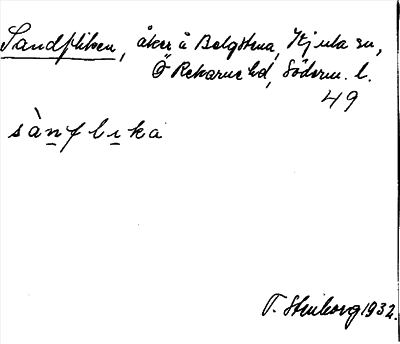 Sandfliken, åker å Balgstna, Kjula sn,
Ö Rekarne hd, Söderm. l.
49
sànflika
T. Stenborg 1932.